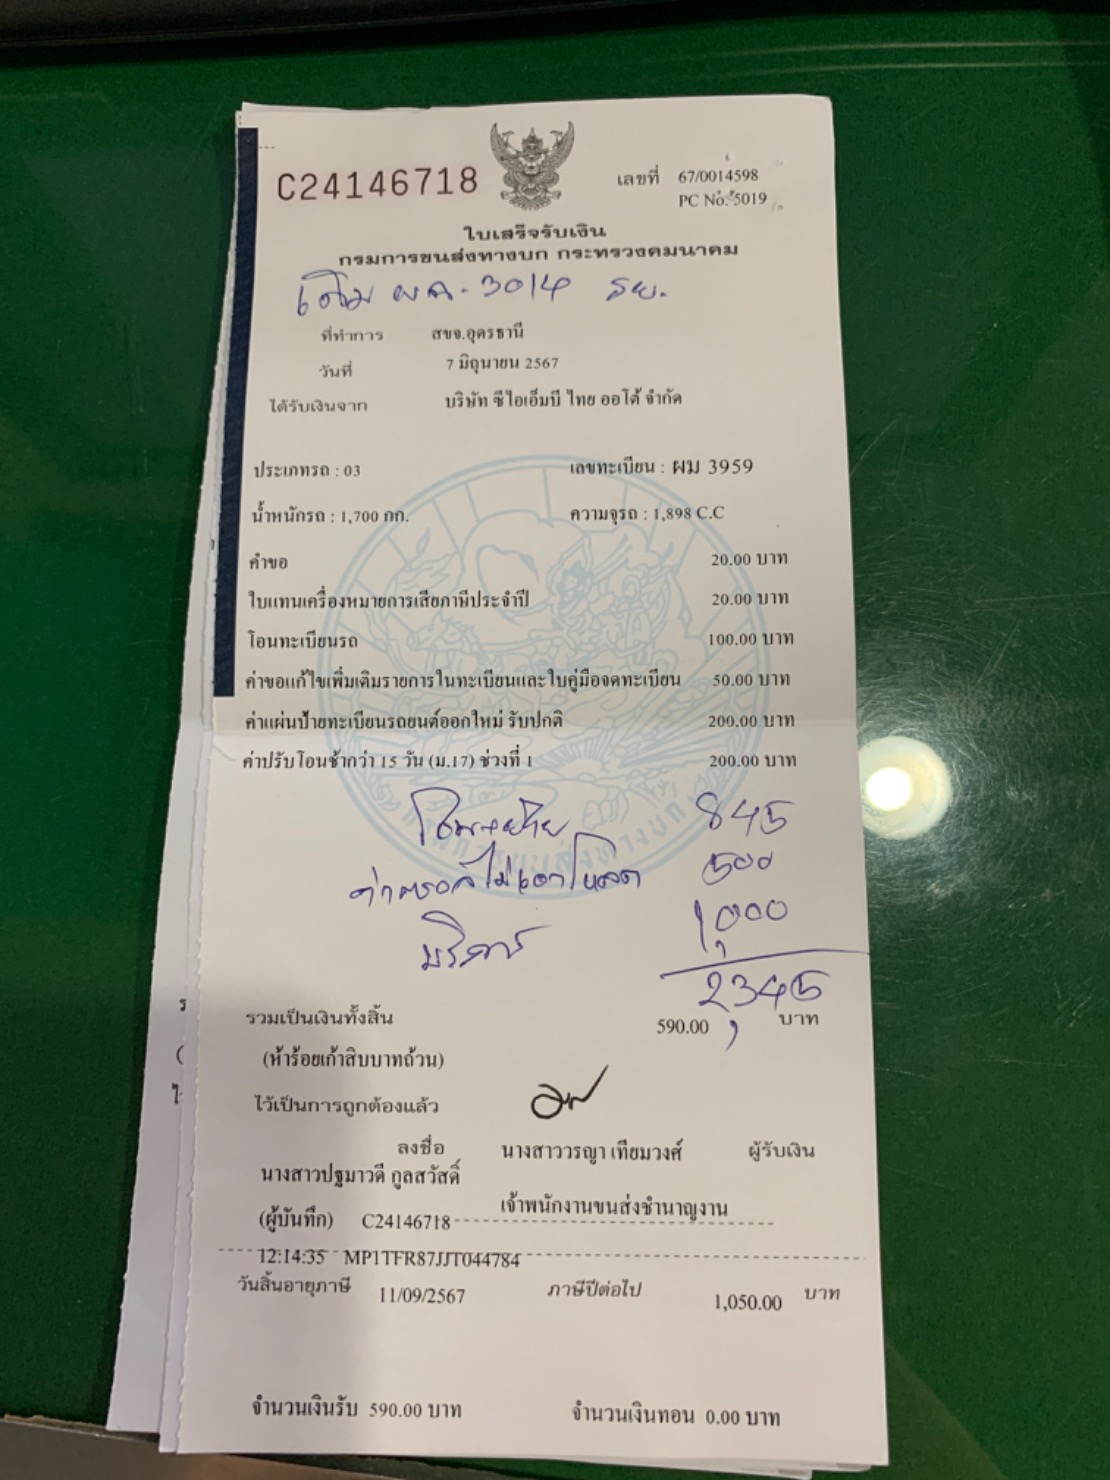 C24146718
เลขที่ 67/0014598
PC No. 5019
ใบเสร็จรับเงิน
กรมการขนส่งทางบก กระทรวงคมนาคม
เดิม ผค-3014 รย.
ที่ทำการ สขจ.อุดรธานี
วันที่ 7 มิถุนายน 2567
ได้รับเงินจาก บริษัท ซีไอเอ็มบี ไทย ออโต้ จำกัด
ประเภทรถ : 03 เลขทะเบียน : ผม 3959
น้ำหนักรถ : 1,700 กก. ความจุรถ : 1,898 C.C
คำขอ 20.00 บาท
ใบแทนเครื่องหมายการเสียภาษีประจำปี 20.00 บาท
โอนทะเบียนรถ 100.00 บาท
ค่าขอแก้ไขเพิ่มเติมรายการในทะเบียนและใบคู่มือจดทะเบียน 50.00 บาท
ค่าแผ่นป้ายทะเบียนรถยนต์ออกใหม่ รับปกติ 200.00 บาท
ค่าปรับโอนช้ากว่า 15 วัน (ม.17) ช่วงที่ 1 200.00 บาท
โอน+ย้าย 845
ค่าตรอ.ไม่เอาโหลด 500
บริการ 1,000
2,345
รวมเป็นเงินทั้งสิ้น 590.00 บาท
(ห้าร้อยเก้าสิบบาทถ้วน)
ไว้เป็นการถูกต้องแล้ว
ลงชื่อ นางสาววรญา เทียมวงศ์ ผู้รับเงิน
นางสาวปฐมาวดี กูลสวัสดิ์
(ผู้บันทึก) C24146718 เจ้าพนักงานขนส่งชำนาญงาน
12:14:35 MP1TFR87JJT044784
วันสิ้นอายุภาษี 11/09/2567 ภาษีปีต่อไป 1,050.00 บาท
จำนวนเงินรับ 590.00 บาท จำนวนเงินทอน 0.00 บาท